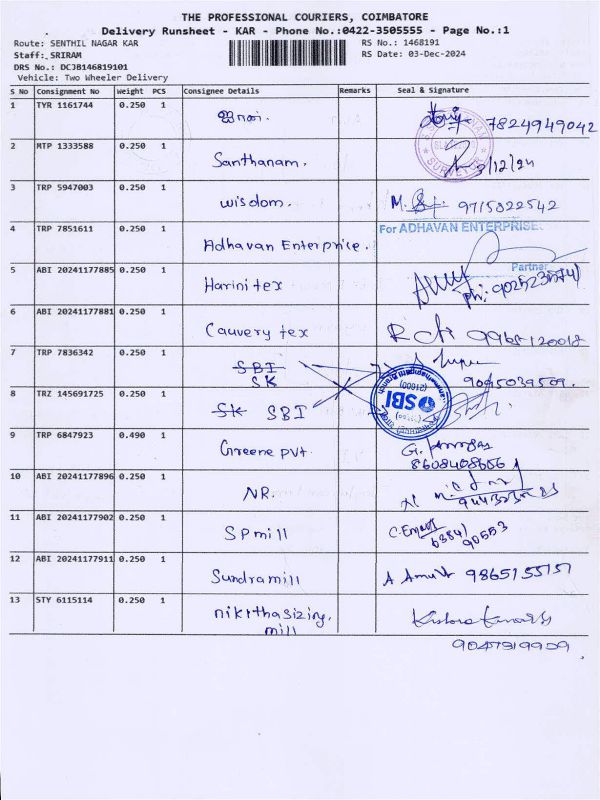 THE PROFESSIONAL COURIERS, COIMBATORE
Delivery Runsheet - KAR - Phone No.:0422-3505555 - Page No.:1
Route: SENTHIL NAGAR KAR
RS No.: 1468191
Staff: SRIRAM
RS Date: 03-Dec-2024
DRS No.: DCJB146819101
Vehicle: Two Wheeler Delivery
S No Consignment No Weight PCS Consignee Details Remarks Seal & Signature
1 TYR 1161744 0.250 1 7824949042
2 MTP 1333588 0.250 1 Santhanam. 3/12/24
SURVEYOR
3 TRP 5947003 0.250 1 wisdom. 9715822542
4 TRP 7851611 0.250 1 Adhavan Enterprice.
For ADHAVAN ENTERPRISE
Partner
5 ABI 20241177885 0.250 1 Harini tex
6 ABI 20241177881 0.250 1 Cauvery tex
7 TRP 7836342 0.250 1 SBI
SK
8 TRZ 145691725 0.250 1 SK SBI
SBI
9 TRP 6847923 0.490 1 Greene pvt.
8608408656
10 ABI 20241177896 0.250 1 NR.
11 ABI 20241177902 0.250 1 SP mill
6384/
90553
12 ABI 20241177911 0.250 1 Sundra mill
13 STY 6115114 0.250 1 nikithasizing.
mill